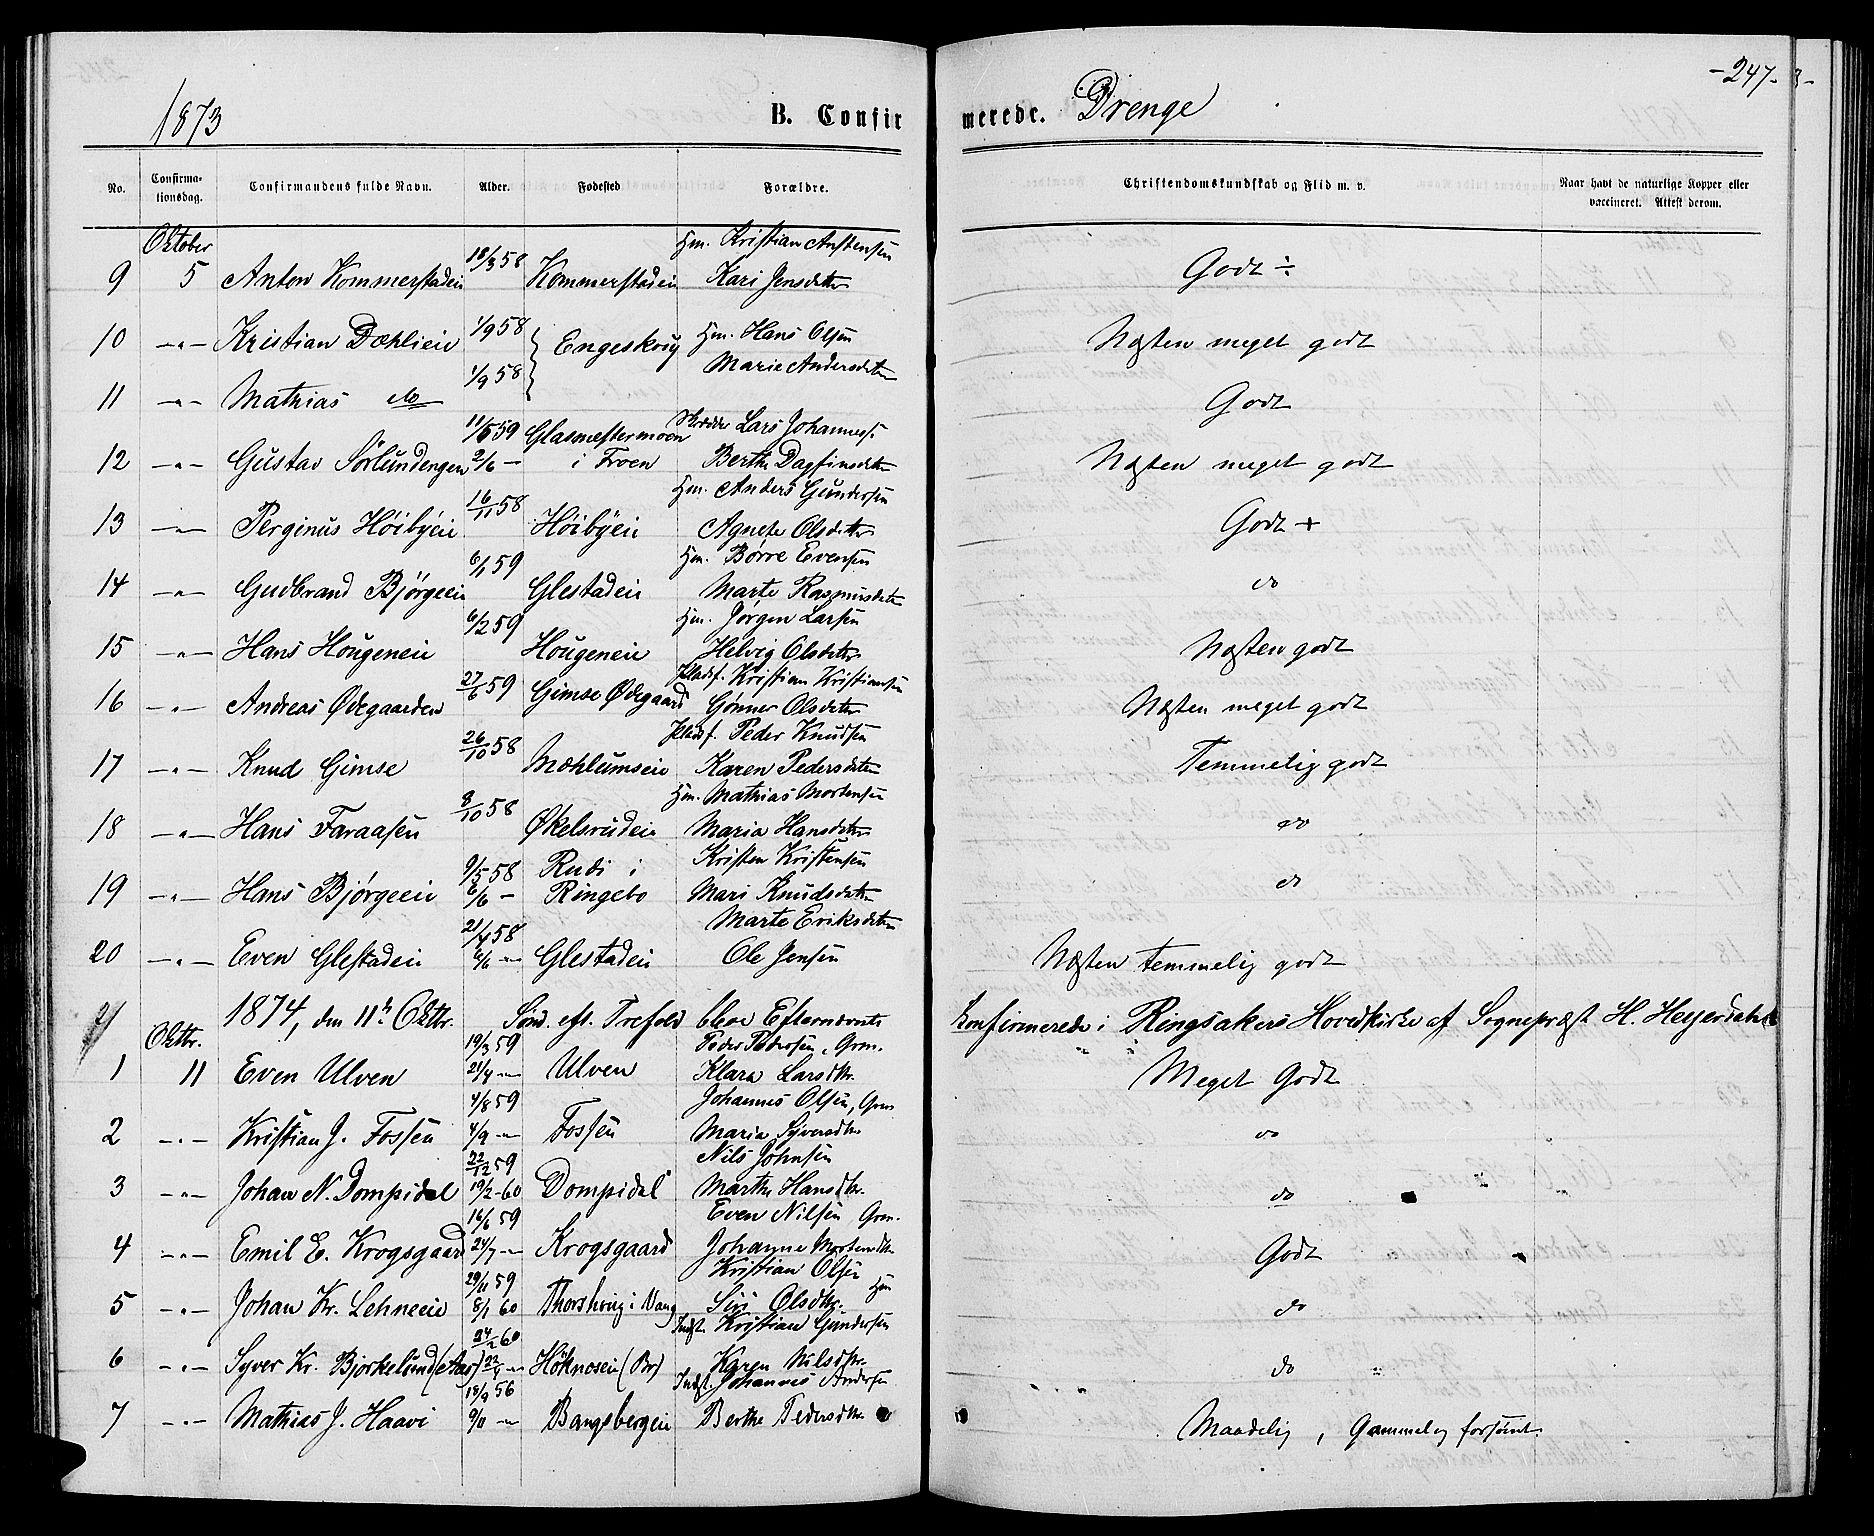 -247-
1873 B. Confirmerede. Drenge
No. Confirmationsdag. Confirmandens fulde Navn. Alder. Fødested Forældre. Christendomskundskab og Flid m. v. Naar havt de naturlige Kopper eller vaccineret. Attest derom.
Oktober 18/3 58 Hm. Kristian Austensen
9 5 Anton Kommerstadeie Kommerstadeie Kari Jensdatter Godt ÷
10 -"- Kristian Dæhlieie 1/9 58 Engeskrug Hm. Hans Olsen Næsten meget godt
1/9 58 Marie Andersdatter
11 -"- Mathias do Godt
11/5 59 Glasmestermoen Lars Johanness.
12 -"- Gustav Sørlundengen 2/6 - i Froen Berthe Dagfinsdatter Næsten meget godt
16/11 58 Hm. Anders Gundersen
13 -"- Perginus Höibyeie Höibyeie Agnete Olsdatter Godt +
6/1 59 Hm. Børre Evensen
14 -"- Gudbrand Bjørgeeie Glestadeie Marte Rasmusdatter do
6/2 59 Hm. Jørgen Larsen
15 -"- Hans Hougeneie Hougeneie Helvig Olsdatter Næsten godt
27/6 59 Pladsf. Kristian Kristiansen
16 -"- Andreas Ødegaarden Gimse Ødegaard Gønner Olsdatter Næsten meget godt
26/10 58 Pladsf. Peder Knudsen
17 -"- Knud Gimse Mæhlumseie Karen Pedersdatter Temmelig godt
8/10 58 Hm. Mathias Mortensen
18 -"- Hans Faraasen Økelsrudeie Maria Hansdatter do
9/5 58 Rudi i Kristen Kristensen
19 -"- Hans Bjørgeeie 6/6 - Ringebo Mari Knudsdatter do
21/4 58 Marte Eriksdatter
20 -"- Even Glestadeie 6/6 - Glestadeie Ole Jensen Næsten temmelig godt
1874, den 11te Oktbr. Sönd. eft. Trefold. bleve Efternævnte Konfirmerede i Ringsakers Hovedkirke af Sognepræst H. Heyerdahl
Oktbr. 19/3 59 Peder Pedersen, Grm.
1 11 Even Ulven 21/4 - Ulven Klara Larsdtr. Meget Godt
4/8 59 Johannes Olsen, Grm
2 -"- Kristian J. Fossen 4/9 - Fossen Maria Syversdtr do
22/12 59 Nils Johnsen
3 -"- Johan N. Dompidal 19/2 - 60 Dompidal Marthe Hansdtr. do
16/6 59 Even Nilsen, Grm.
4 -"- Emil E. Krogsgaard 24/7 - Krogsgaard Johanne Mortensdtr Godt
29/11 59 Kristian Olsen Hm
5 -"- Johan Kr. Lehneeie 8/1 60 Thorshoug i Vang Siri Olsdtr. do
24/2 60 Indst. Kristian Gundersen
6 -"- Syver Kr. Bjørkelund (Aas) Höknoseie (Br) Karen Nilsdtr. do
18/9 56 Indst. Johannes Andersen
7 -"- Mathias J. Haavi 9/11 - Bangsbergeie Berthe Pedersdtr. Maadelig, Gammel og forsömt.